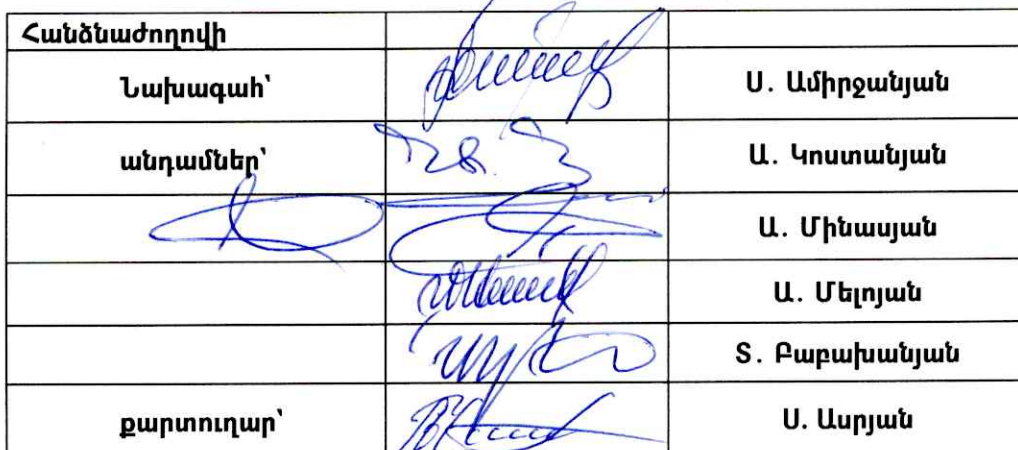 Հանձնաժողովի
Նախագահ՝ Ս. Ամիրջանյան
անդամներ՝ Ա. Կոստանյան
Ա. Մինասյան
Ա. Մելոյան
Տ. Բաբախանյան
քարտուղար՝ Ս. Ասրյան